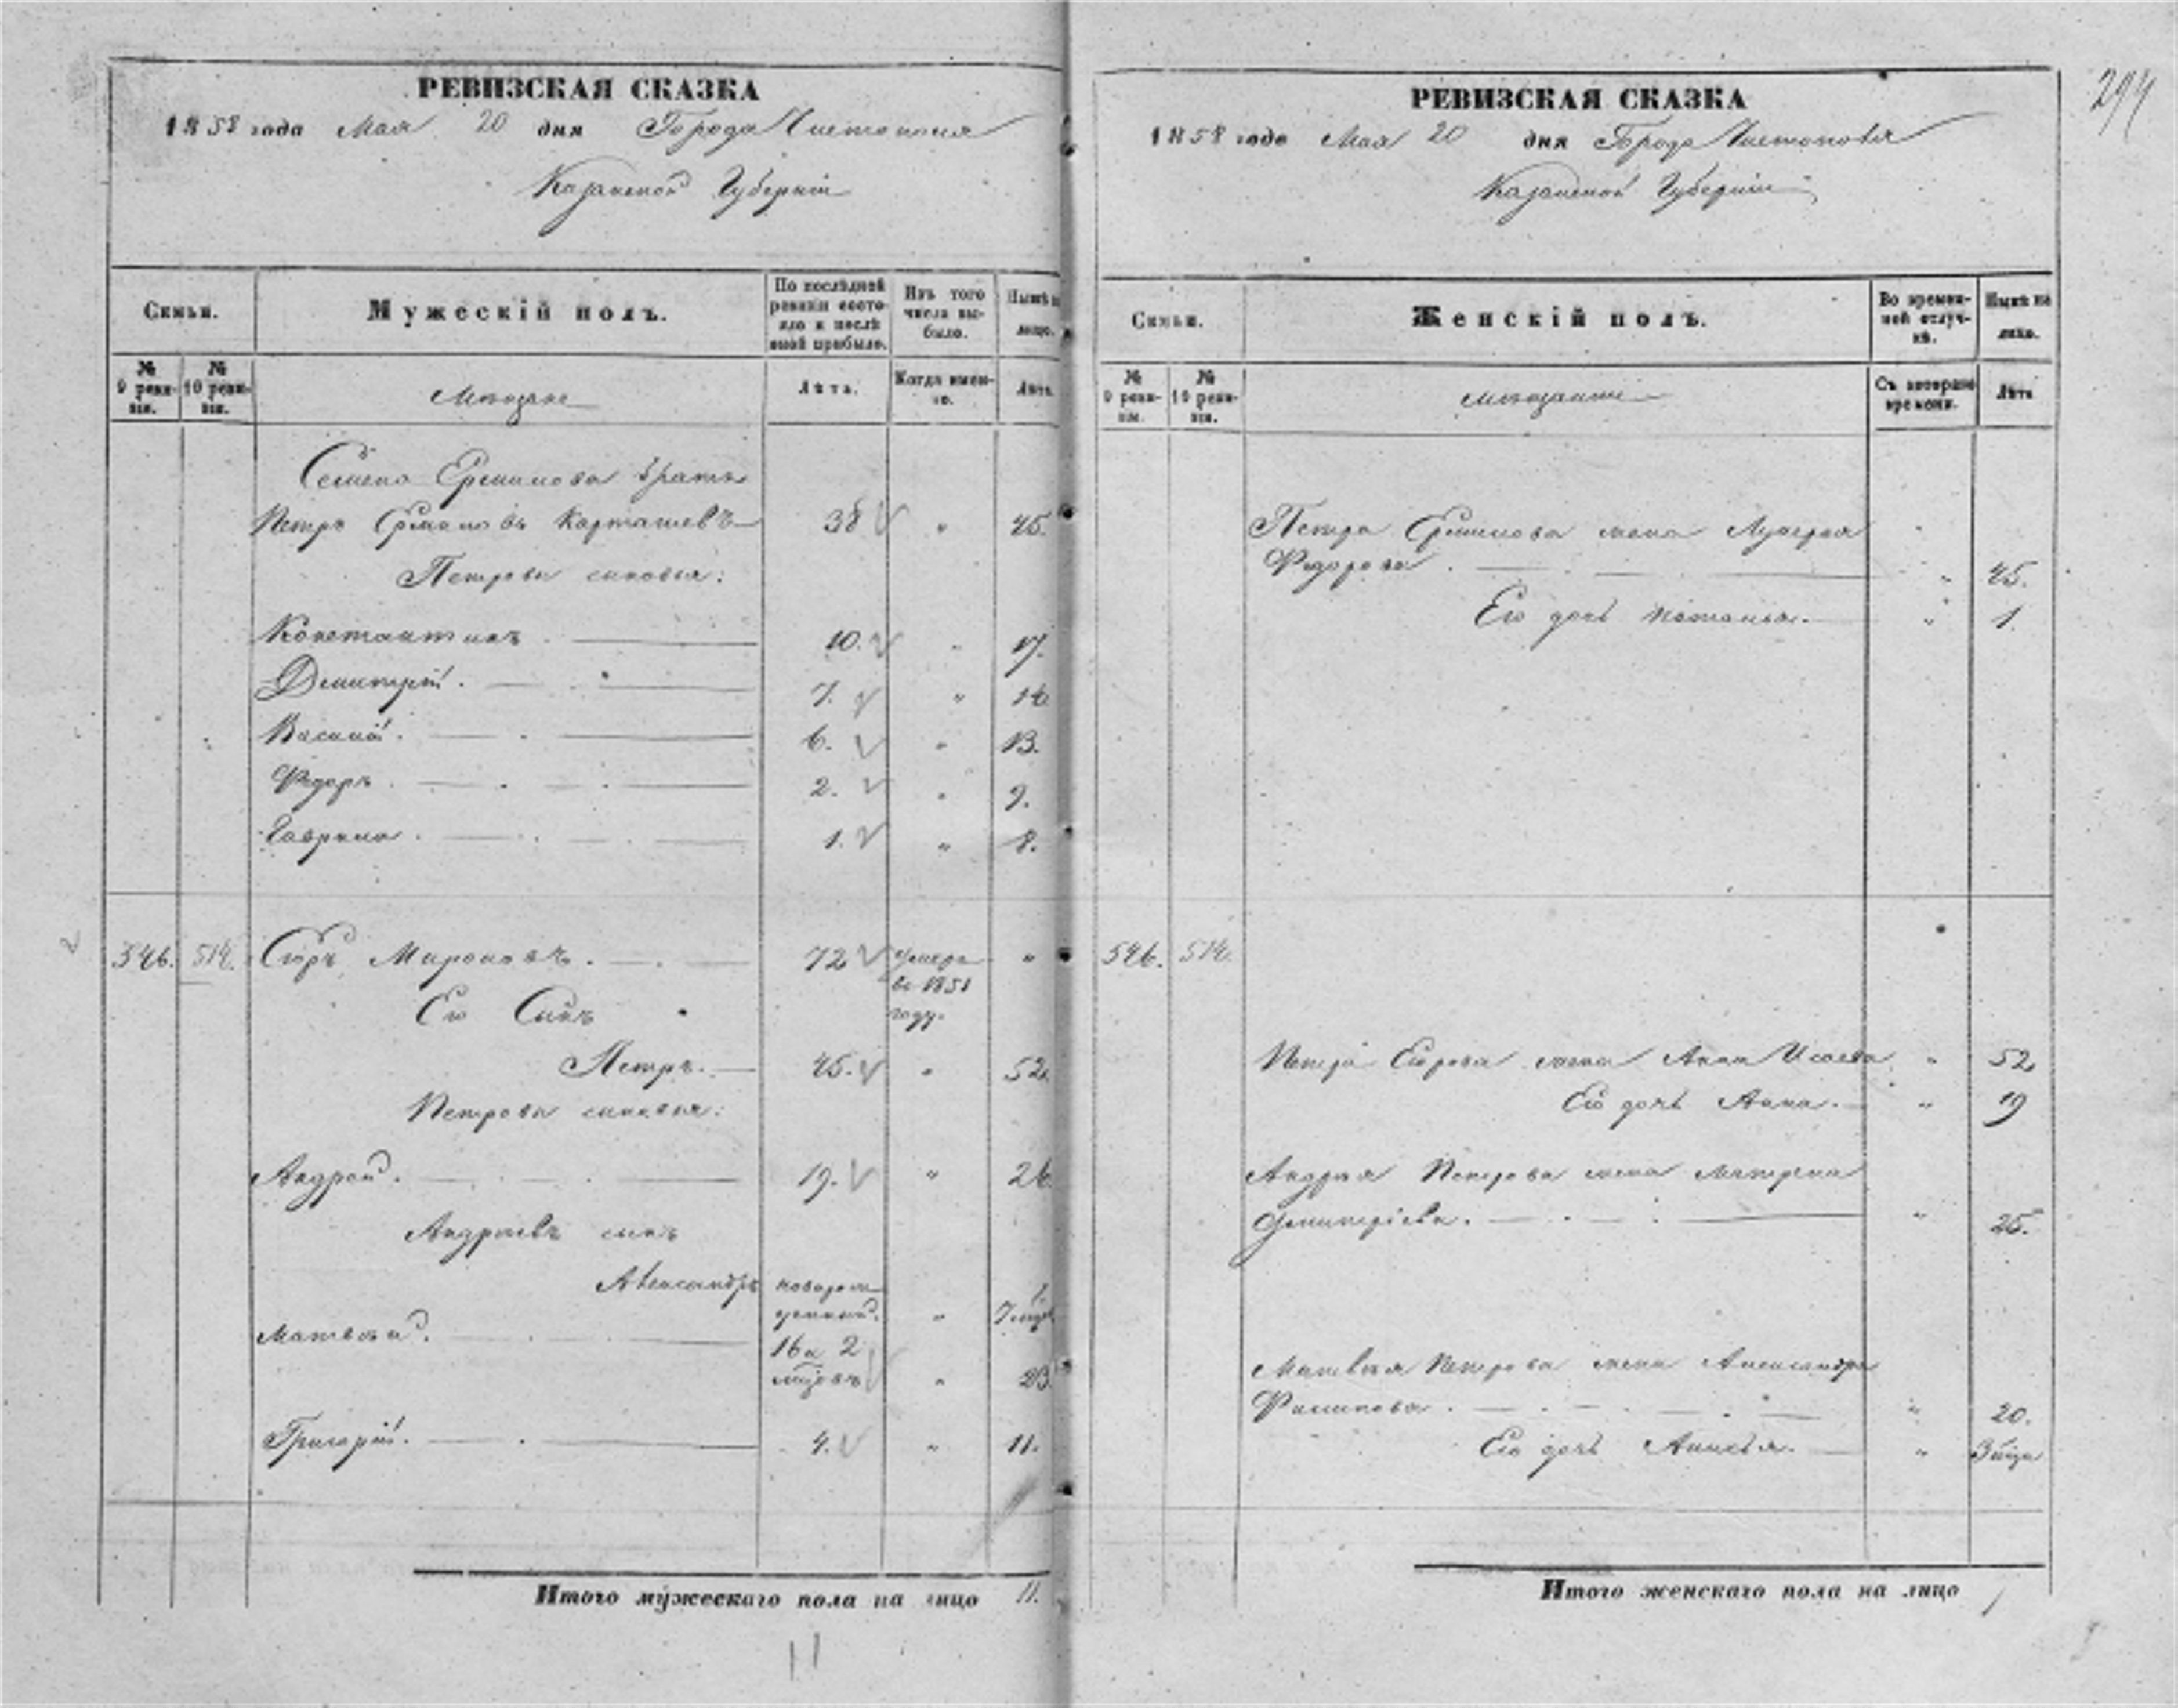 294
РЕВИЗСКАЯ СКАЗКА
1858 года Мая 20 дня Города Чистополя
Казанской Губернiи
Семьи.
Мужескiй полъ.
По послѣдней ревизiи состояло и послѣ оной прибыло.
Изъ того числа выбыло.
Нынѣ на лицо.
№ 9 ревизiи.
№ 10 ревизiи.
Мещане
Лѣта.
Когда именно.
Лѣта.
Семена Ермилова братъ
Петръ Ермиловъ Карташевъ 38 " 45.
Петровы сыновья:
Константинъ. 10. " 17.
Дмитрiй. 7. " 14
Василiй. 6. " 13.
Федоръ. 2. " 9.
Гаврила. 1. " 8.
546. 514. Егоръ Мироновъ. 72 умеръ въ 1851 году. "
Его Сынъ
Петръ. 45. " 52.
Петровы сыновья:
Андрей. 19. " 26.
Андреевъ сынъ
Александръ новорожденный. "
Матвей. 16 и 2 мѣсяцъ " 23.
Григорiй. 4. " 11.
Итого мужескаго пола на лицо 11.
11
РЕВИЗСКАЯ СКАЗКА
1858 года Мая 20 дня Города Чистополя
Казанской Губернiи
Семьи.
Женскiй полъ.
Во временной отлучкѣ.
Нынѣ на лицо.
№ 9 ревизiи.
№ 10 ревизiи.
Мещанки
Съ котораго времени.
Лѣта
Петра Ермилова жена Лукерья
Федорова. " 45.
Его дочь Наталья. " 1.
546. 514.
Петра Егорова жена Анна Исаева " 52
Его дочь Анна. " 19
Андрея Петрова жена Матрена
Дмитрiева. " 25.
Матвея Петрова жена Александра
Филипова. " 20.
Его дочь Анисья. "
Итого женскаго пола на лицо